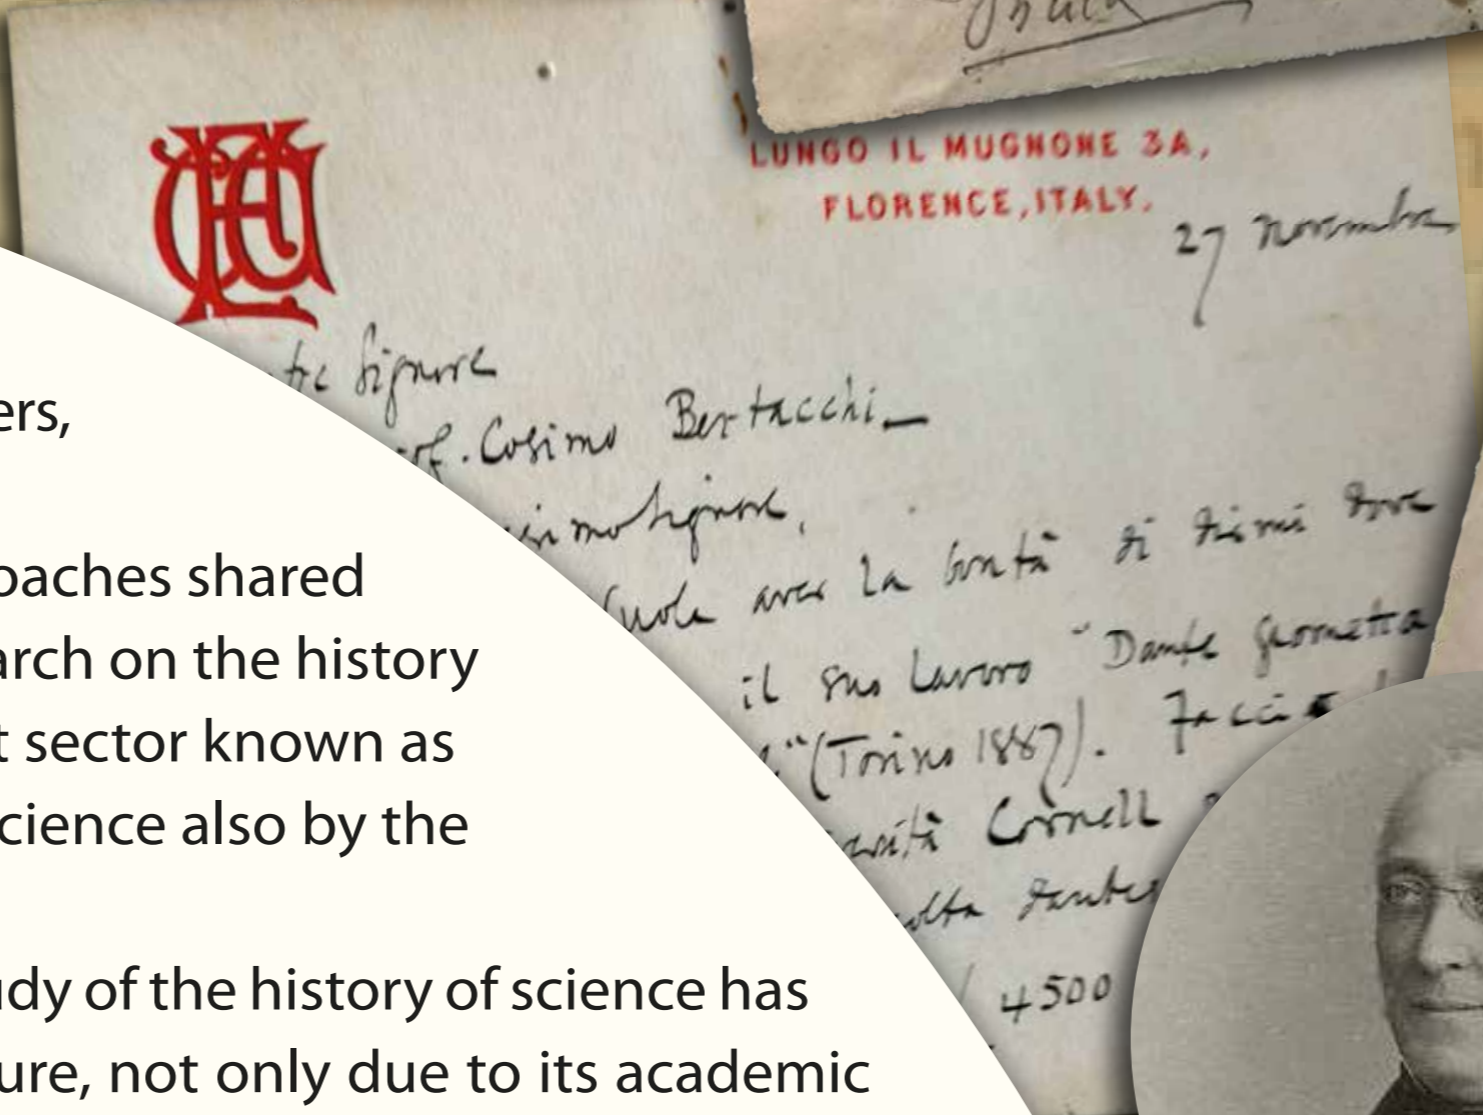 LUNGO IL MUGNONE 3A,
FLORENCE, ITALY.
27 novembre
tre Signore
of. Cosimo Bertacchi_
simo Signore,
vuole aver la bontà di dirmi dove
il suo lavoro "Dante geometra
" (Torino 1887). Faccio
ersità Cornell
olta dantes
4500
ers,
oaches shared
arch on the history
t sector known as
cience also by the
udy of the history of science has
ure, not only due to its academic